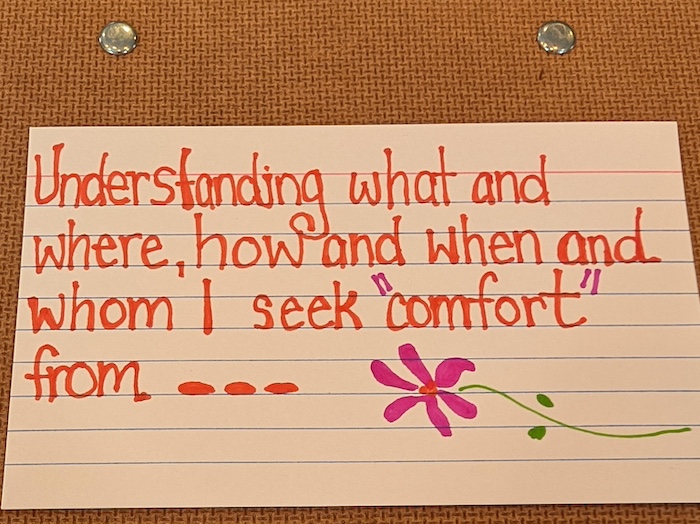 Understanding what and
where, how and when and
whom I seek "comfort"
from...